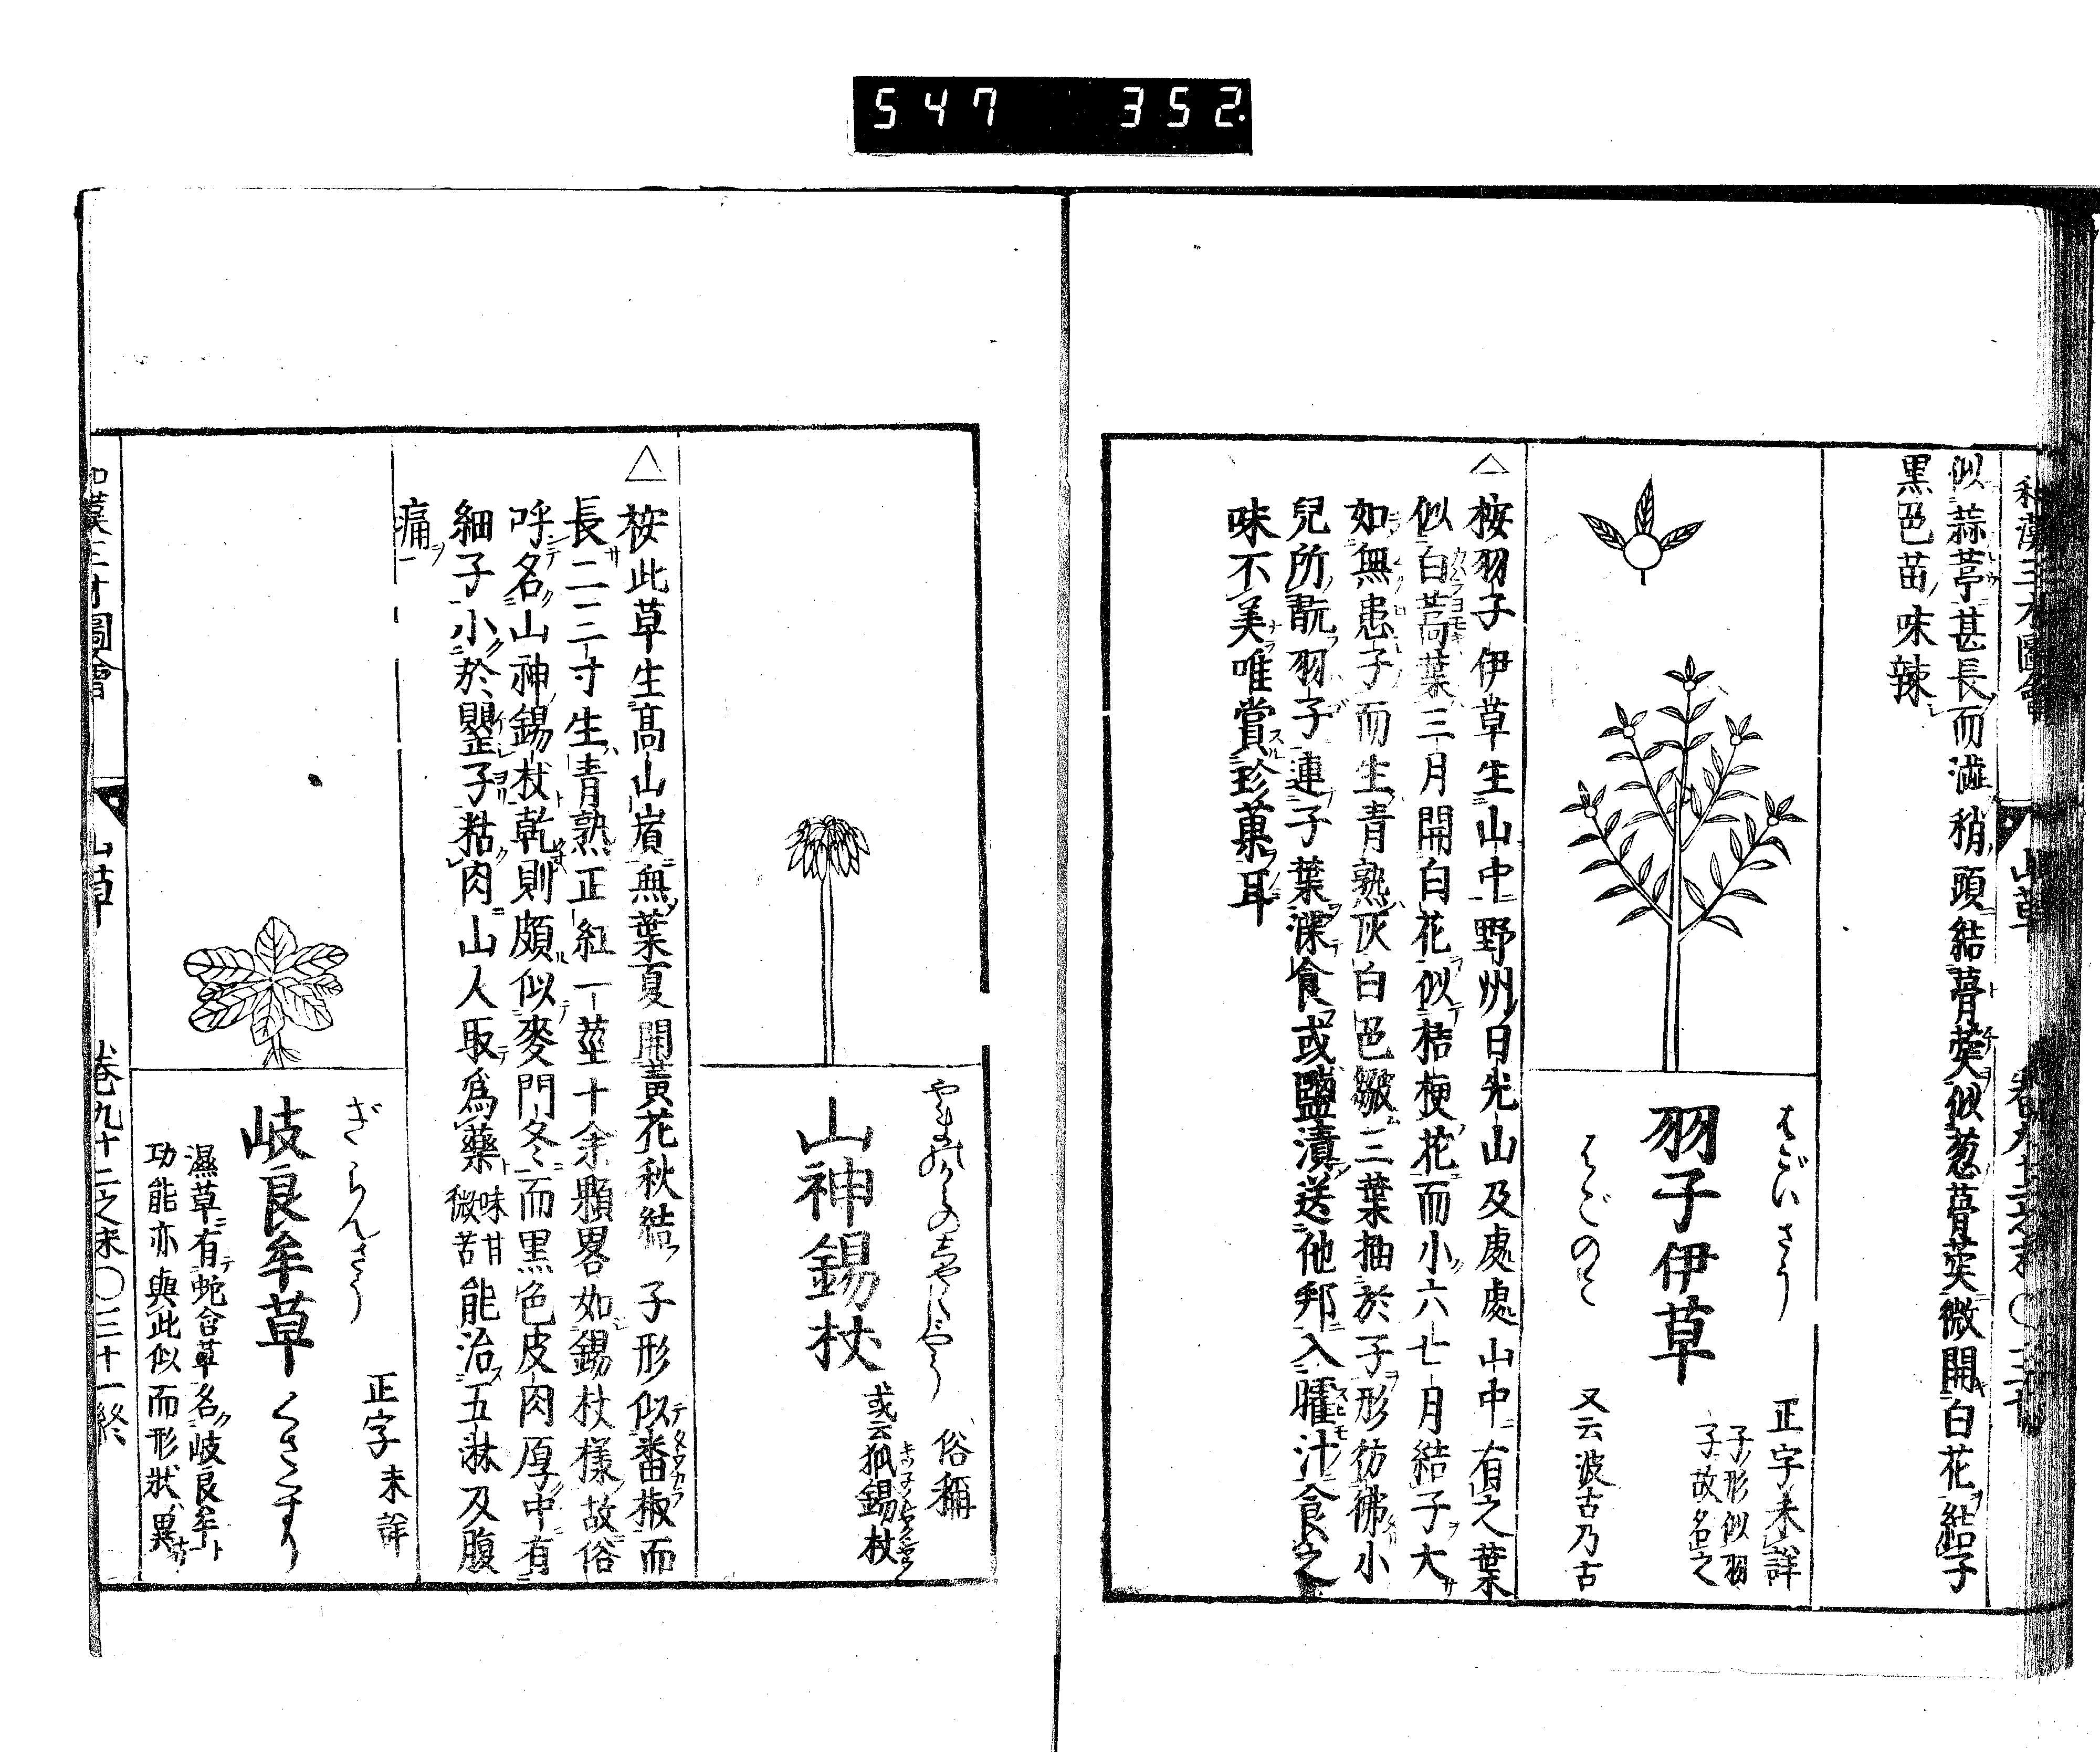 547 352
和漢三才圖會 山草
似蒜葶甚長而澁稍頭結蓇葖似葱蓇葖微開白花結子
黒色苗味辣
はごいさう
羽子伊草
はごのこ
正字未詳
子形似羽
子故名之
又云波古乃古
△
桉羽子伊草生山中野州日光山及處處山中有之葉
似白蒿葉三月開白花似桔梗花而小六七月結子大
如無患子而生青熟灰白色皺三葉抽於子形彷彿小
兒所翫羽子連子葉𤁋食或鹽漬送他邦入臛汁食之
味不美唯賞珍菓耳
やまのかみのしやくじやう
俗稱
山神錫杖
或云狐錫杖
キツ子ノシヤクジヤウ
△
桉此草生高山嵿無葉夏開黃花秋結子形似番椒而
長二三寸生青熟正紅一莖十余顆畧如錫杖樣故俗
呼名山神錫杖乾則頗似麥門冬而黒色皮肉厚中有
細子小於罌子粘肉山人取爲藥味甘微苦能治五淋及腹
痛
ぎらんさう
正字未詳
岐良牟草
くさぎり
濕草有蛇含草名岐良牟
功能亦與此似而形狀異
和漢三才圖會 山草 卷九十二之末〇三十一終